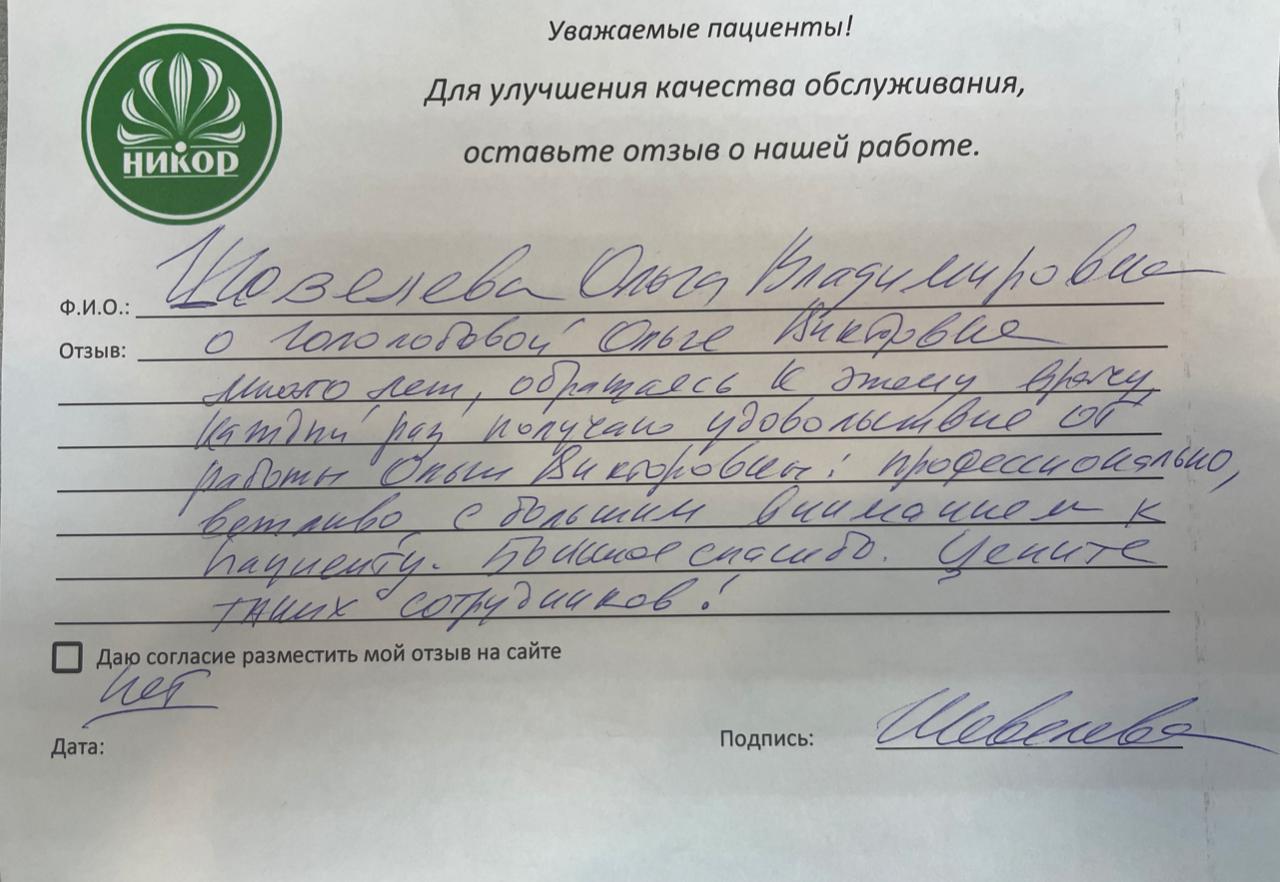 НИКОР
Уважаемые пациенты!
Для улучшения качества обслуживания,
оставьте отзыв о нашей работе.
Ф.И.О.: Шевелева Ольга Владимировна
Отзыв: о Гололобовой Ольге Викторовне
много лет, обращаясь к этому врачу,
каждый раз получаю удовольствие от
работы Ольги Викторовны: профессионально,
вежливо, с большим вниманием к
пациенту. Большое спасибо. Цените
таких сотрудников!
Даю согласие разместить мой отзыв на сайте
нет
Дата:
Подпись: Шевелева